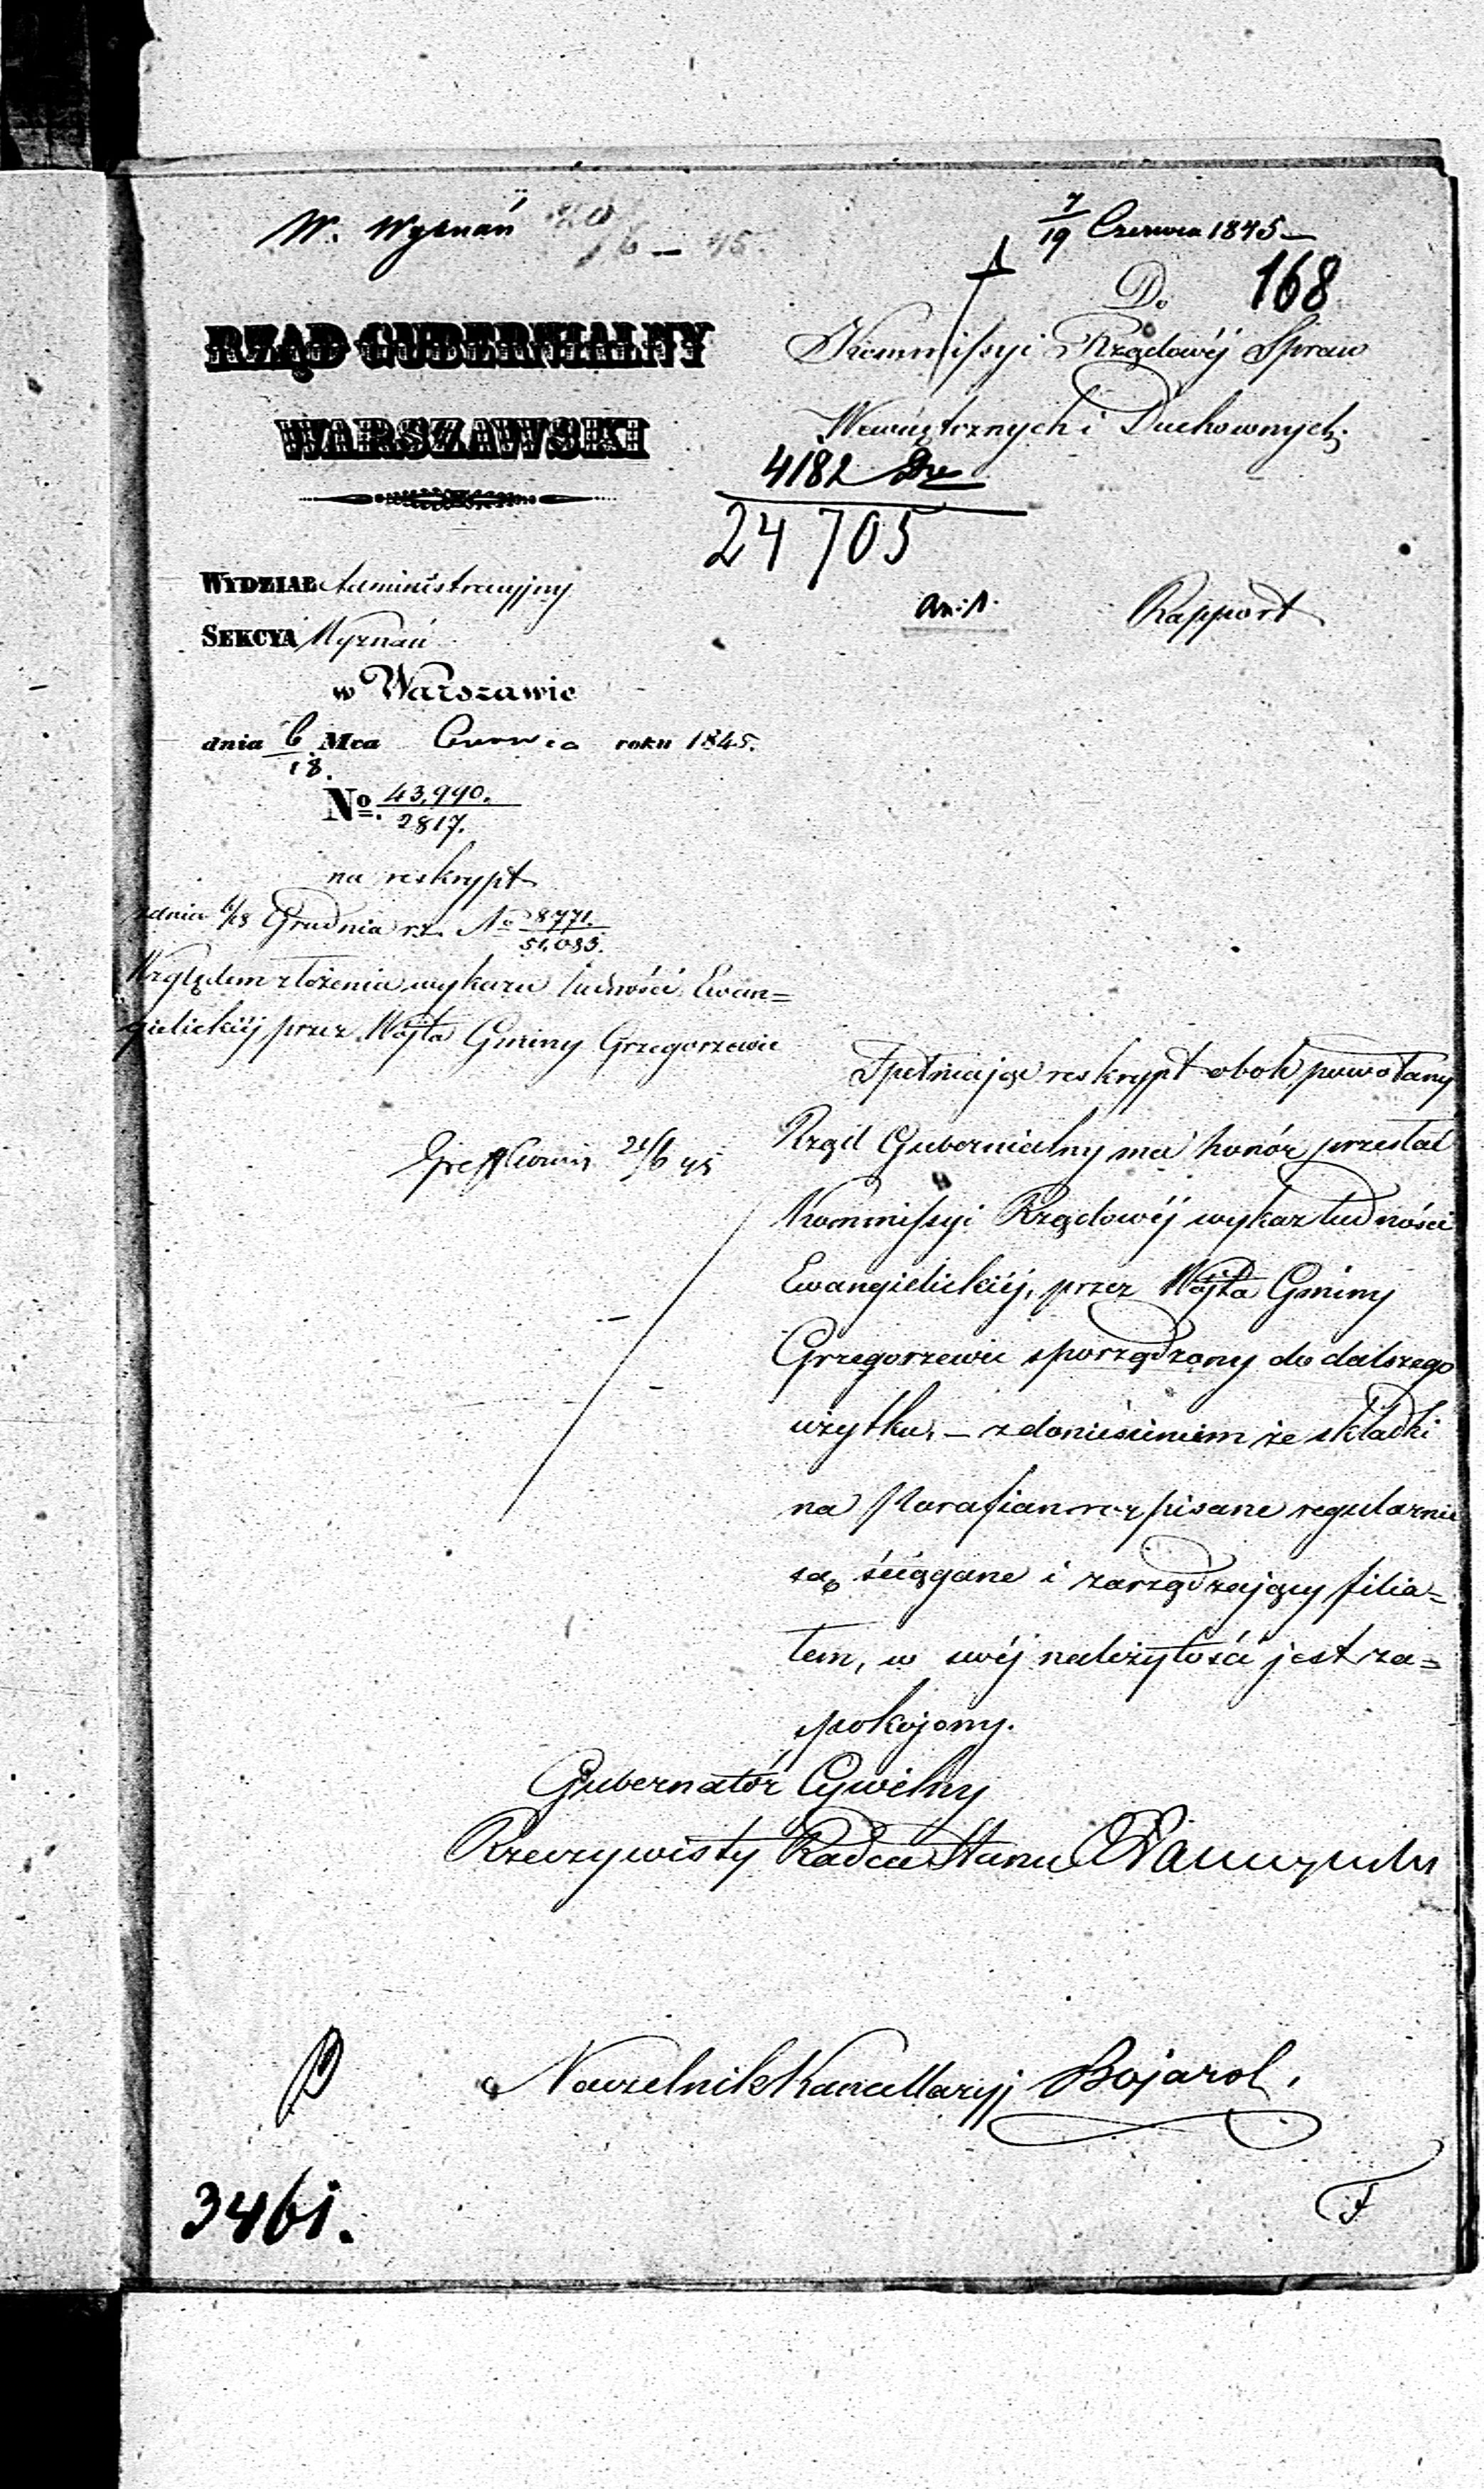 W. Wyznań 20/6 – 45.
7/19 Czerwca 1845 –
168
Do
Kommissyi Rządowéj Spraw
Wewnętrznych i Duchownych.
RZĄD GUBERNIALNY
WARSZAWSKI
4182
24705
WYDZIAŁ Administracyjny
SEKCYA Wyznań
w Warszawie
dnia 6/18. Mca Czerwca roku 1845.
No. 43,990./2817.
an: 1.
Rapport
na reskrypt
z dnia 6/18 Grudnia r.z. No 8771./51,083.
Względem złożenia wykazu ludności Ewan=
gielickiéj przez Wójta Gminy Grzegorzew
21/6 45
Spełniając reskrypt obok powołany
Rząd Gubernialny ma honór przesłać
Kommissyi Rządowéj wykaz ludności
Ewangielickiéj, przez Wójta Gminy
Grzegorzew sporządzony do dalszego
użytku, – z doniesieniem że składki
na Parafian rozpisane regularnie
są ściągane i zarządzający filia=
łem, w swéj należytości jest za=
spokojony.
Gubernator Cywilny
Rzeczywisty Radca Stanu
Naczelnik Kancellaryj Bojarol.
3461.